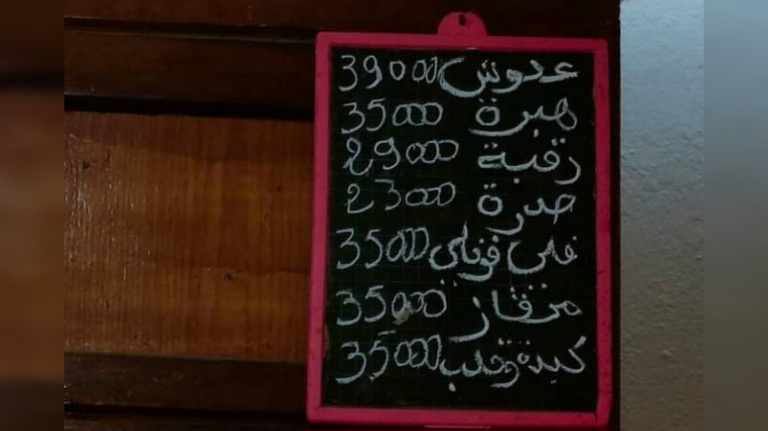 عدوش 39000
هبرة 35000
رقبة 29000
صدرة 23000
فلى فونلى 35000
مرقاز 35000
كبدة وقلب 35000